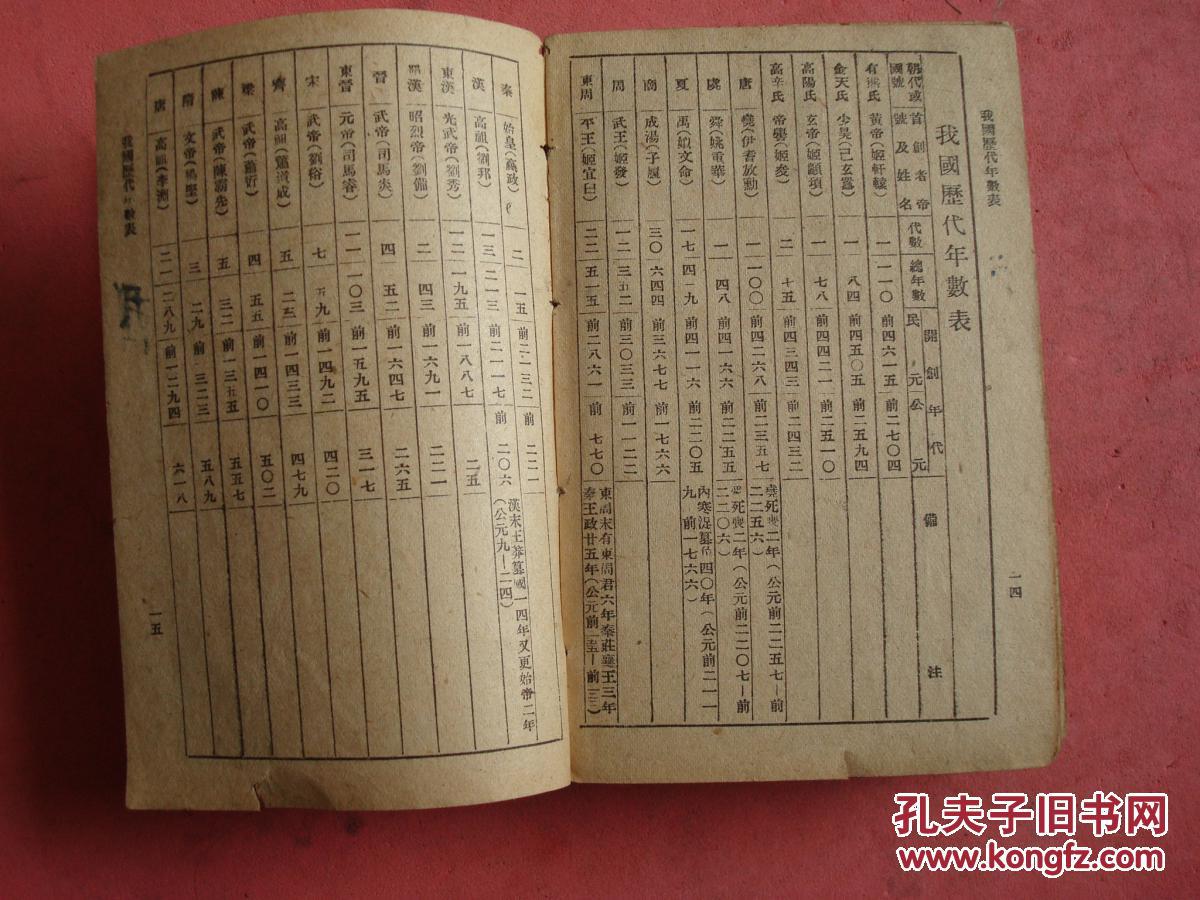 我國歷代年數表
一四
我國歷代年數表
朝代或國號 首創者帝號及姓名 代數 總年數 開創年代 民元 公元 備注
有熊氏 黃帝(姬軒轅) 一 一一〇 前四六一五 前二七〇四
金天氏 少昊(己玄囂) 一 八四 前四五〇五 前二五九四
高陽氏 玄帝(姬顓頊) 一 七八 前四四二一 前二五一〇
高辛氏 帝嚳(姬夋) 二 十五 前四三四三 前二四三二
唐 堯(伊耆放勳) 一 一〇〇 前四二六八 前二三五七 堯死喪二年(公元前二二五七—前二二五六)
虞 舜(姚重華) 一 四八 前四一六六 前二二五五 死喪二年(公元前二二〇七—前二二〇六)
夏 禹(姒文命) 一七 四一九 前四一一六 前二二〇五 內寒浞篡位四〇年(公元前二一一九—前一七六六)
商 成湯(子履) 三〇 六四四 前三六七七 前一七六六
周 武王(姬發) 一二 三五二 前三〇三三 前一一二二
東周 平王(姬宜臼) 二二 五一五 前二八六一 前七七〇 東周末有東周君六年秦莊襄王三年秦王政廿五年
秦 始皇(嬴政) 二 一五 前二一三二 前二二一
漢 高祖(劉邦) 一三 前二一一七 前二〇六 漢末王莽篡國一四年又更始帝二年(公元九—二四)
東漢 光武帝(劉秀) 一三 一九五 前一八八七 二五
漢 昭烈帝(劉備) 二 四三 前一六九一 二二一
晉 武帝(司馬炎) 四 五二 前一六四七 二六五
東晉 元帝(司馬睿) 一一 一〇三 前一五九五 三一七
宋 武帝(劉裕) 七 五九 前一四九二 四二〇
齊 高祖(蕭道成) 五 二三 前一四三三 四七九
梁 武帝(蕭衍) 四 五五 前一四一〇 五〇二
陳 武帝(陳霸先) 五 三二 前一三五五 五五七
隋 文帝(楊堅) 三 二九 前一三二三 五八九
唐 高祖(李淵) 二一 二八九 前一二九四 六一八
我國歷代年數表
一五
孔夫子旧书网
www.kongfz.com